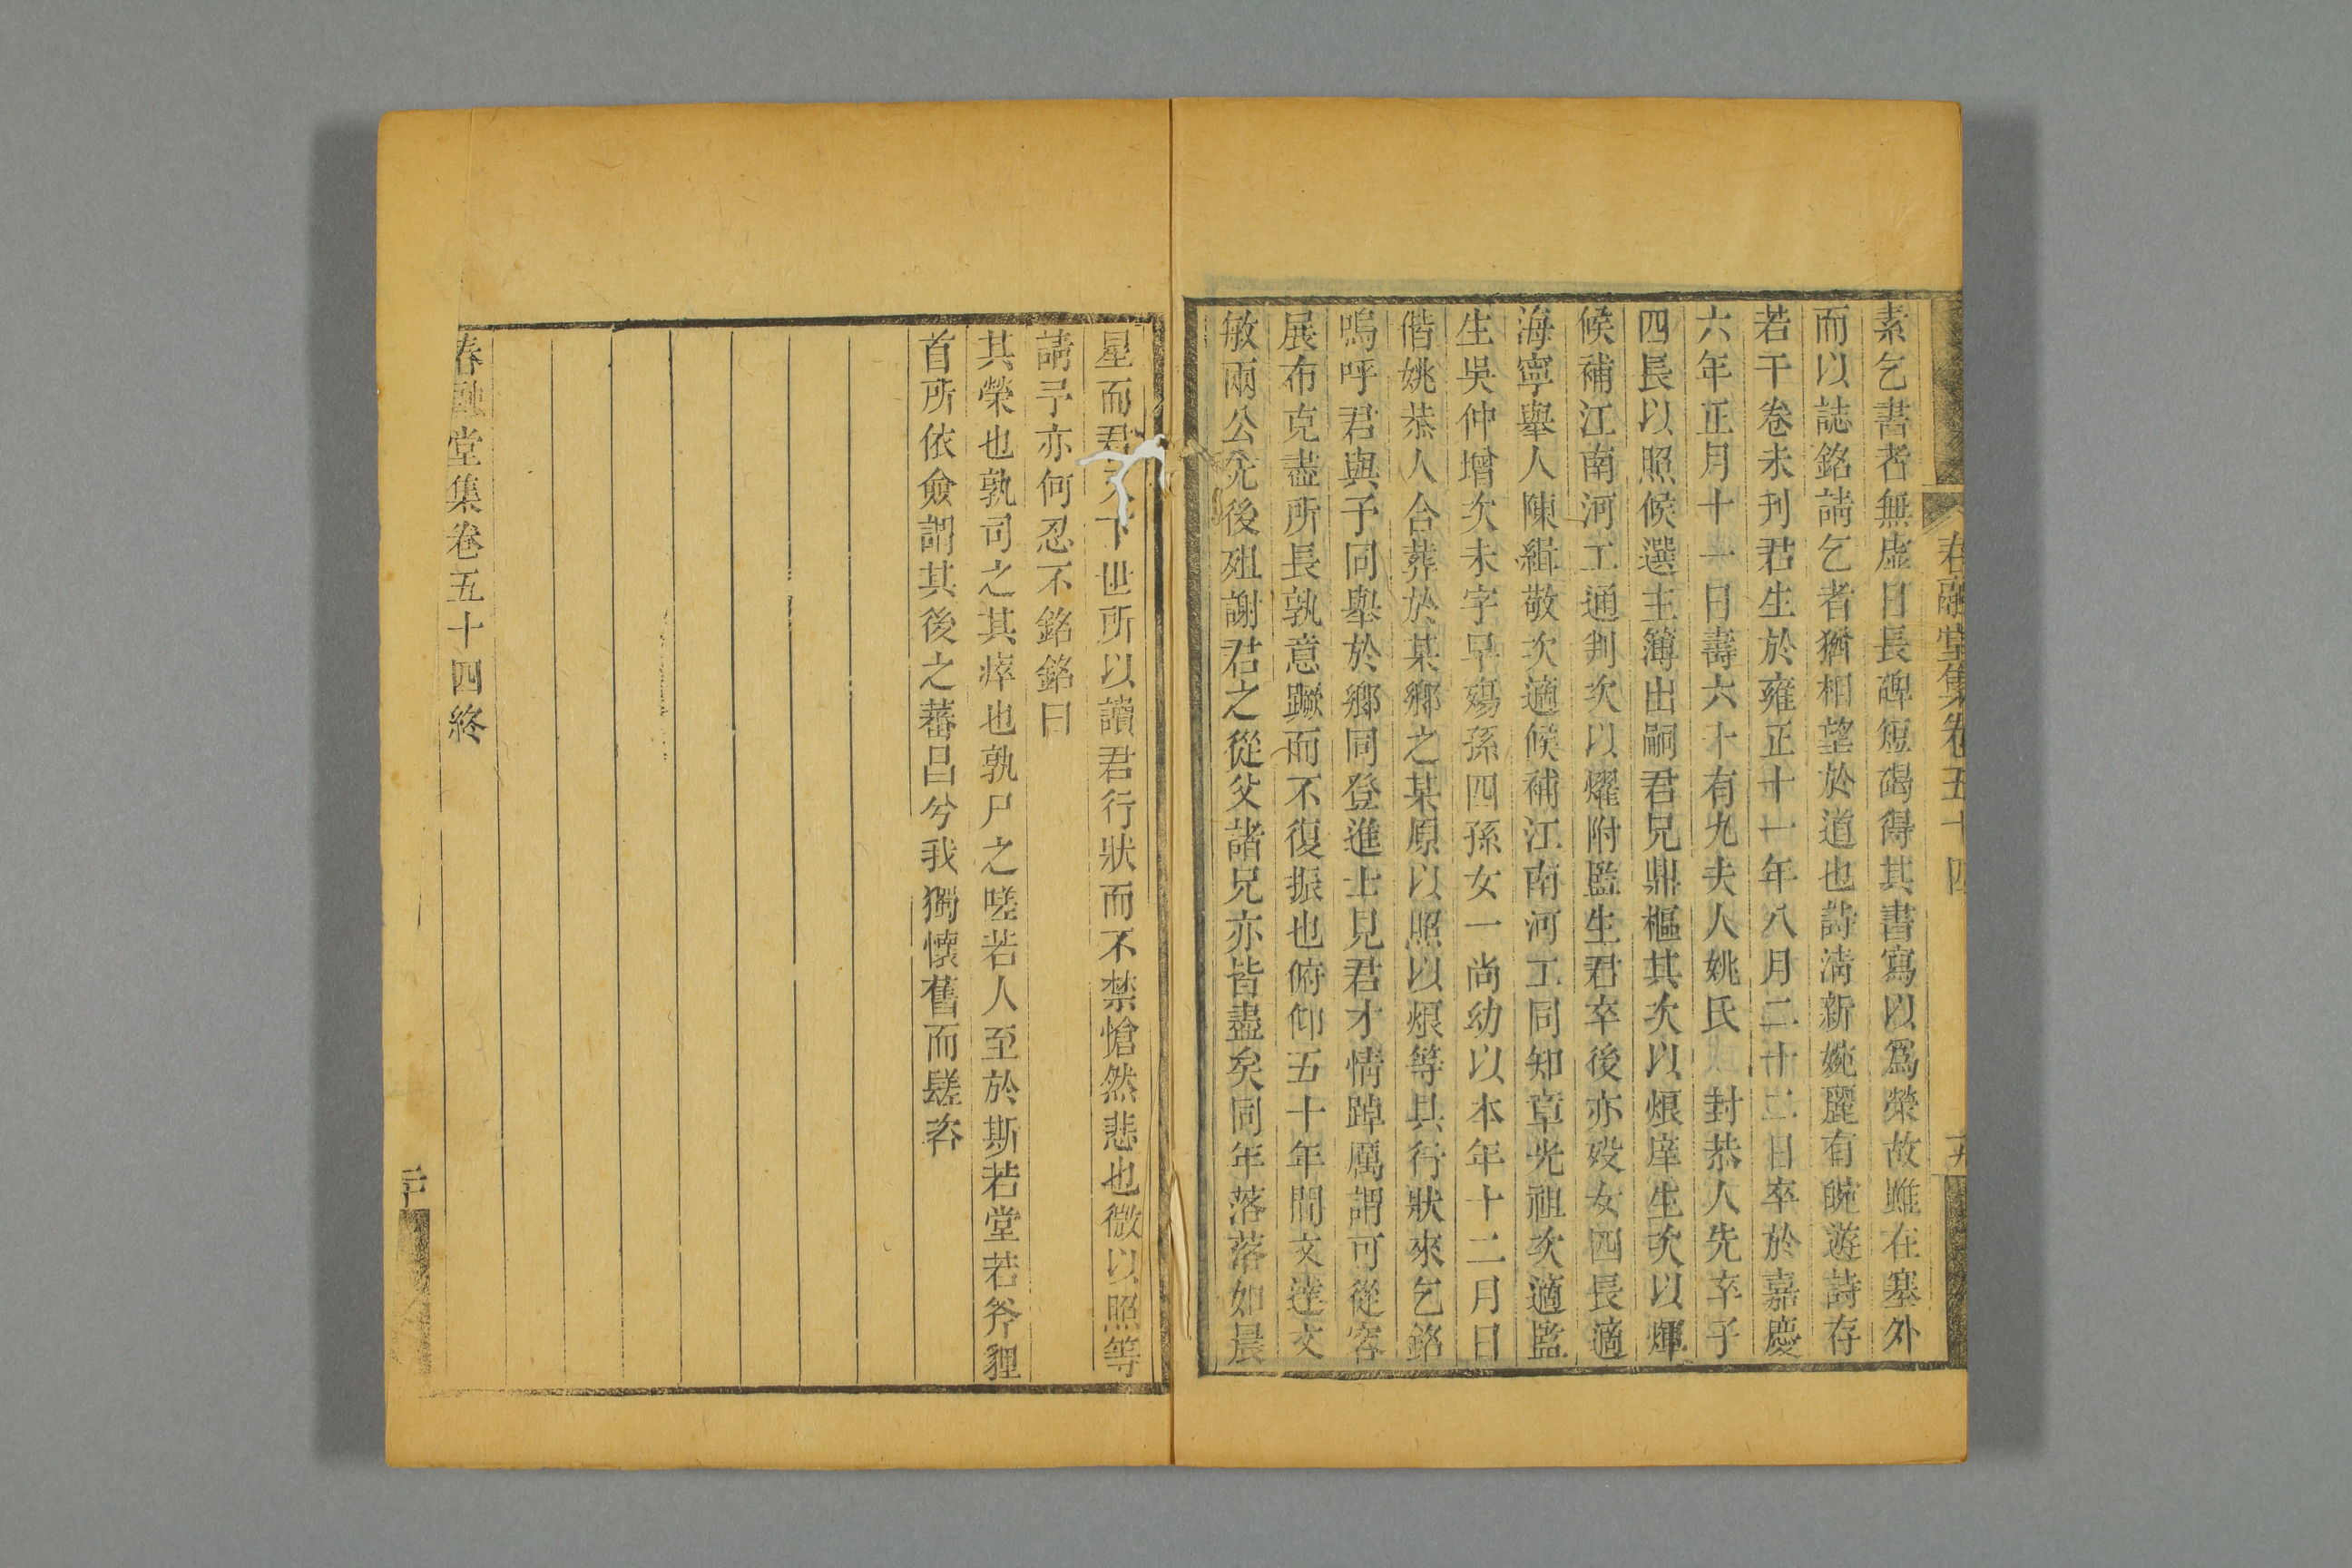 春融堂集卷五十四
素乞書者無虛日長碑短碣得其書寫以爲榮故雖在塞外
而以誌銘請乞者猶相望於道也詩淸新婉麗有皖遊詩存
若干卷未刊君生於雍正十一年八月二十二日卒於嘉慶
六年正月十一日壽六十有九夫人姚氏 封恭人先卒子
四長以照候選主簿出嗣君兄鼎樞其次以烺庠生次以煇
候補江南河工通判次以燿附監生君卒後亦歿女四長適
海寧舉人陳緝敬次適候補江南河工同知章光祖次適監
生吳仲增次未字早殤孫四孫女一尚幼以本年十二月日
偕姚恭人合葬於某鄕之某原以照以烺等具行狀來乞銘
嗚呼君與予同舉於鄕同登進士見君才情踔厲謂可從容
展布克盡所長孰意蹶而不復振也俯仰五十年間文達文
敏兩公先後殂謝君之從父諸兄亦皆盡矣同年落落如晨
星而君又下世所以讀君行狀而不禁愴然悲也微以照等
請予亦何忍不銘銘曰
其榮也孰司之其瘁也孰尸之嗟若人至於斯若堂若斧貍
首所依僉謂其後之蕃昌兮我獨懷舊而髿咨
春融堂集卷五十四終